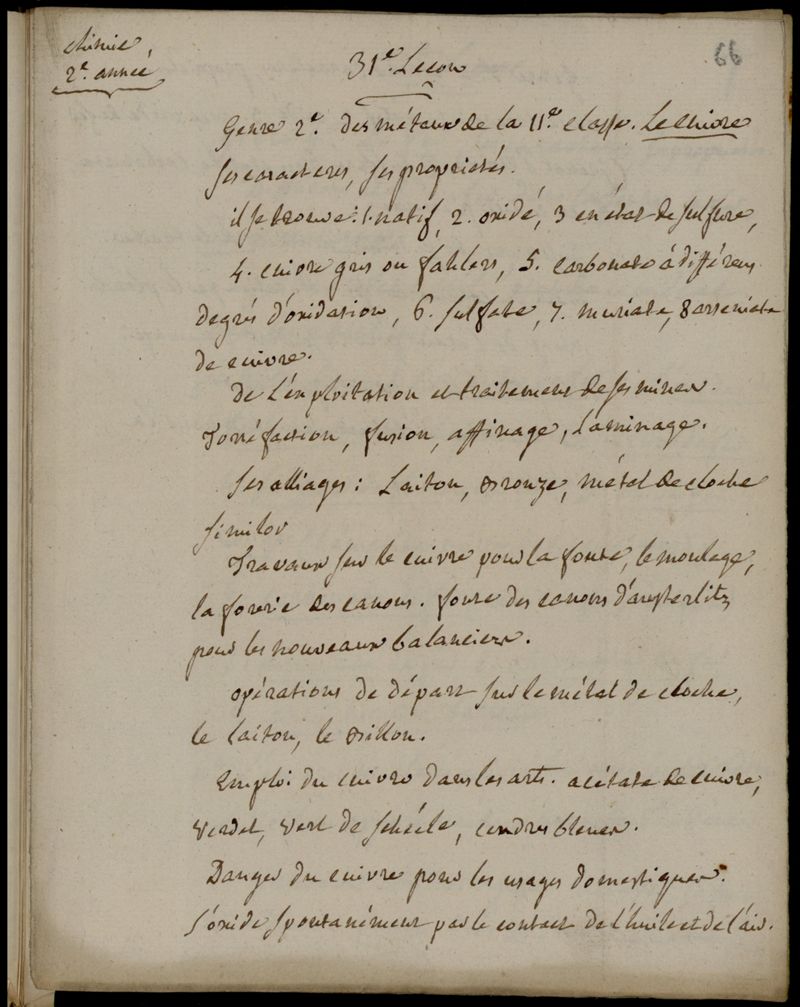 chimie,
2e. année
66
31e. Lecon
Genre 2e. des métaux de la 11e. classe. Le cuivre
ses caracteres, ses proprietés.
il se trouve: 1. natif, 2. oxidé, 3 en état de sulfure,
4. cuivre gris ou fahlers, 5. carbonate à différens
degrés d'oxidation, 6. sulfate, 7. muriate, 8 arseniate
de cuivre.
de L'exploitation et traitement de ses mines.
Torréfaction, fusion, affinage, Laminage.
ses alliages: Laiton, Bronze, métal de cloche
similor
Travaux sur le cuivre pour la fonte, le moulage,
la forerie des canons. fonte des canons d'austerlitz
pour les nouveaux balanciers.
opérations de départ sur le métal de cloche,
le laiton, le Billon.
Emploi du cuivre dans les arts. acétate de cuivre,
Verdet, Vert de schéele, cendres bleues.
Danger du cuivre pour les usages domestiques.
s'oxide spontanément par le contact de l'huile et de l'air.